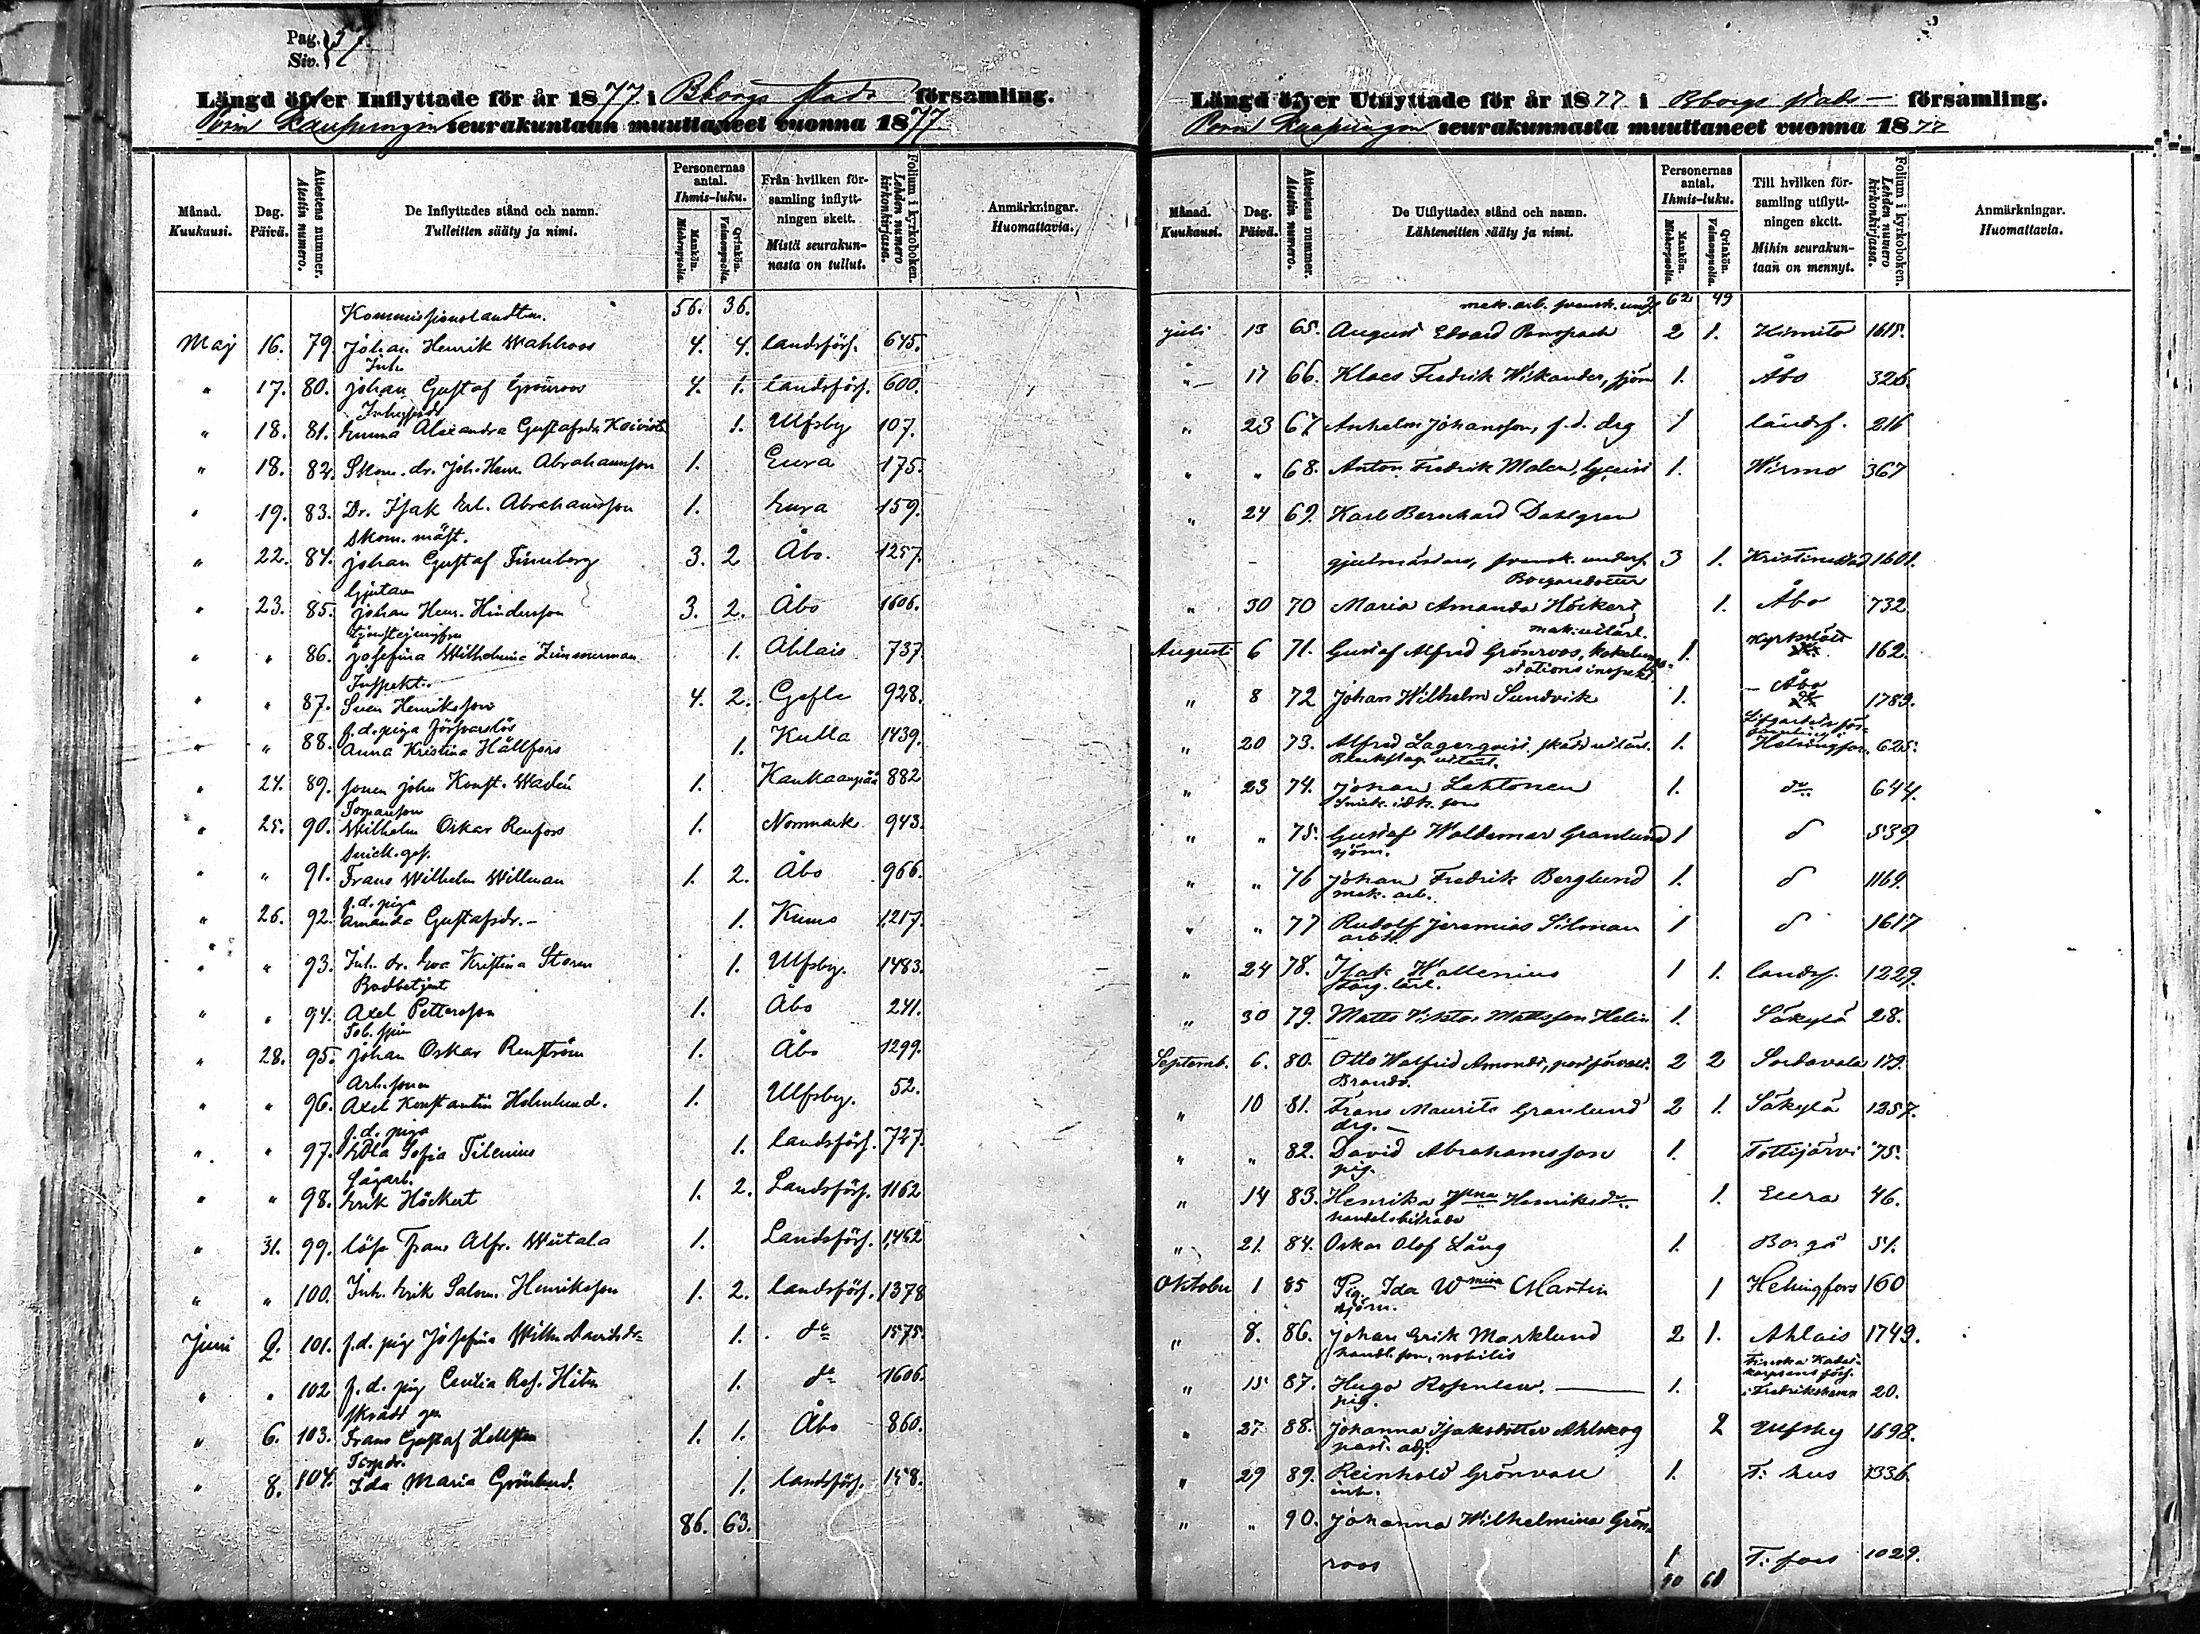 Pag. 37
Siv.
Längd öfver Inflyttade för år 1877 i Bborgs stads församling.
Porin Kaupungin seurakuntaan muuttaneet vuonna 1877
Månad. Kuukausi.
Dag. Päivä.
Attestens nummer. Atestin numero.
De Inflyttades stånd och namn. Tulleitten sääty ja nimi.
Personernas antal. Ihmis-luku.
Mankön. Miehenpuolia.
Qvinkön. Vaimonpuolia.
Från hvilken församling inflyttningen skett. Mistä seurakunnasta on tullut.
Folium i kyrkoboken. Lehden numero kirkonkirjassa.
Anmärkningar. Huomattavia.
56. 36.
Maj 16. 79. Johan Henrik Wahlroos 4. 4. landsförs. 645.
Inh.
" 17. 80. Johan Gustaf Grönroos 4. 1. landsförs. 600.
" 18. 81. Emma Alexandra Gustafsdr Koivisto 1. Ulfsby 107.
" 18. 82. Skom. dr. Joh. Henr. Abrahamsson 1. Eura 175.
" 19. 83. Dr. Isak Erl. Abrahamsson 1. Eura 159.
Skom. mäst.
" 22. 84. Johan Gustaf Finnberg 3. 2 Åbo. 1257.
Gjutaren
" 23. 85. Johan Henr. Hindersson 3. 2. Åbo 1606.
tjenstejungfru
" " 86. Josefina Wilhelmina Zimmerman 1. Ahlais 737.
Inspekt.
" " 87. Sven Henriksson 4. 2. Gefle 928.
f.d. piga Försvarslös
" " 88. Anna Kristina Hällfors 1. Kulla 1439.
" 24. 89. sonen John Konst. Wadén 1. Kankaanpää 882
Torpareson
" 25. 90. Wilhelm Oskar Renfors 1. Norrmark 943.
Snick. ges.
" " 91. Frans Wilhelm Willman 1. 2. Åbo 966.
f.d. piga
" 26. 92. Amanda Gustafsdr. – 1. Kumo 1217.
" " 93. Inh. dr. Eva Kristina Storm 1. Ulfsby. 1483.
Bodbetjent
" " 94. Axel Pettersson 1. Åbo 241.
Tob. spin
" 28. 95. Johan Oskar Renström 1. Åbo 1299.
Arb. sonen
" " 96. Axel Konstantin Holmlund. 1. Ulfsby. 52.
f.d. piga
" " 97. Edla Sofia Tilenius 1. landsförs. 727.
Sågarb.
" " 98. Erik Höckert 1. 2. Landsförs. 1162
" 31. 99. lösk Frans Alfr. Wiitala 1. Landsförs. 1,462
" " 100. Inh. Erik Salom. Henriksson 1. 2. landsförs. 1378
Juni 2. 101. f.d. pig Josefina Wilhna Davidsdr 1. do 1575.
" " 102 f.d. pig Cecilia Ros. 1. do 1606.
skrädd ges
" 6. 103. Frans Gustaf Hellsten 1. 1. Åbo 860.
Torpdr.
" 8. 104. Ida Maria Grönlund. 1. landsförs. 158.
86. 63.
Längd öfver Utflyttade för år 1877 i Bborgs stads – församling.
Porin Kaupungin seurakunnasta muuttaneet vuonna 1877
Månad. Kuukausi.
Dag. Päivä.
Attestens nummer. Atestin numero.
De Utflyttades stånd och namn. Lähteneitten sääty ja nimi.
Personernas antal. Ihmis-luku.
Mankön. Miehenpuolia.
Qvinkön. Vaimonpuolia.
Till hvilken församling utflyttningen skett. Mihin seurakuntaan on mennyt.
Folium i kyrkoboken. Lehden numero kirkonkirjassa.
Anmärkningar. Huomattavia.
mek. arb. svensk. und. 62 49
juli 13 65. August Edvard 2 1. Kimito 1615.
" 17 66. Klaes Fredrik Wikander, sjöm 1. Åbo 326.
" 23 67. Anhelm Johansson, f.d. drg 1 landsf. 216
" " 68. Anton Fredrik Malen, 1. Wirmo 367
" 24 69. Karl Bernhard Dahlgren
gjutmästare, svensk. unders. 3 1. Kristinestad 1601.
Borgaredotter
" 30 70 Maria Amanda Höckert 1. Åbo 732
mek. utlärl.
Augusti 6 71. Gustaf Alfred Grönroos, 1. Kyrkslätt 162.
stations inspekt.
" 8 72 Johan Wilhelm Sundvik 1. Åbo 1789.
" 20 73. Alfred Lagerqvist, skädd utlärl. 1. Lifgardets församling i Helsingfors 625.
" 23 74. Johan Lehtonen 1. do 644.
Snick. idk. son
" " 75. Gustaf Waldemar Granlund 1 d 539
sjöm.
" " 76 Johan Fredrik Berglund 1. d 1169.
mek. arb.
" " 77 Rudolf Jeremias Silman 1 d 1617
arbk.
" 24 78. Isak Wallenius 1 1. landsf. 1229.
färg. lärl.
" 30 79. Matts Viktor Mattsson Helin 1. Säkylä 28.
Septemb. 6. 80. Otto Walfrid Amondt, postförvalt. 2 2 Sordavala 179.
" 10 81. Frans Maurits Granlund 2 1. Säkylä 1257.
drg. –
" " 82. David Abrahamsson 1. Tottijärvi 75.
pig.
" 14 83. Henrika Wlma Henriksdr 1. Eura 46.
handelsbiträde
" 21. 84. Oskar Olof Lång 1. Borgå 51.
Oktober 1 85 Pig. Ida Wmina Martin 1 Helsingfors 160
sjöm.
" 8. 86. Johan Erik Marklund 2 1. Ahlais 1749.
handl. son, nobilis
" 15 87. Hugo Rosenlew. 1. Finska Kadettkorpsens förs. i Fredrikshamn 20.
pig.
" 27 88. Johanna Isaksdotter Ahlskog 2 Ulfsby 1698.
past. adj.
" 29 89. Reinhold Grönvall 1. T:hus 1336.
inh.
" " 90. Johanna Wilhelmina Grön-
roos 1 T:fors 1029.
70 61